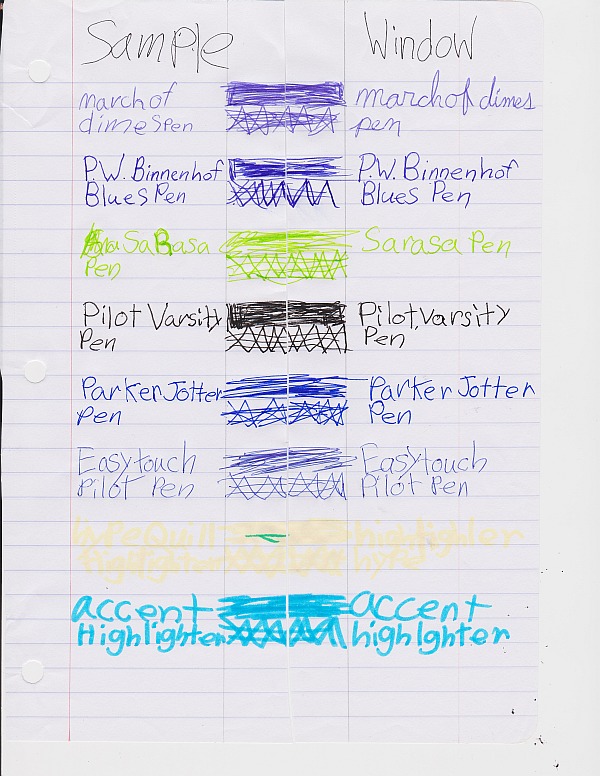 Sample Window
march of march of dimes
dimes Pen pen
P.W. Binnenhof P.W. Binnenhof
Blues Pen Blues Pen
SaRasa Sarasa Pen
Pen
Pilot Varsity Pilot Varsity
Pen Pen
Parker Jotter Parker Jotter
Pen Pen
Easytouch Easytouch
Pilot Pen Pilot Pen
hype Quill highlighter
highlighter hype
accent accent
Highlighter highlghter